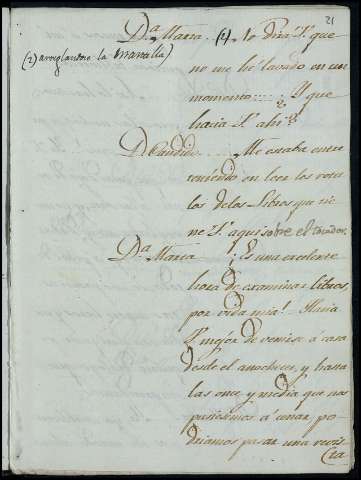 21
Dª Maria. (2) Yo dirá V. que
(2) arreglandose la mantilla)
no me hé lavado en un
momento..... ¿Y que
hacia V. ahi?
D. Candido..... Me estaba entre
teniendo en leer los rotu
los delos Libros que tie
ne V. aqui sobre el tocador.
Dª Maria ¡Es una excelente
hora de examinar libros,
por vida mia! Haria
V. mejor de venirse á casa
desde el anochecer, y hasta
las once y media que nos
pusiesemos á cenar po-
driamos pasar una revis
ta